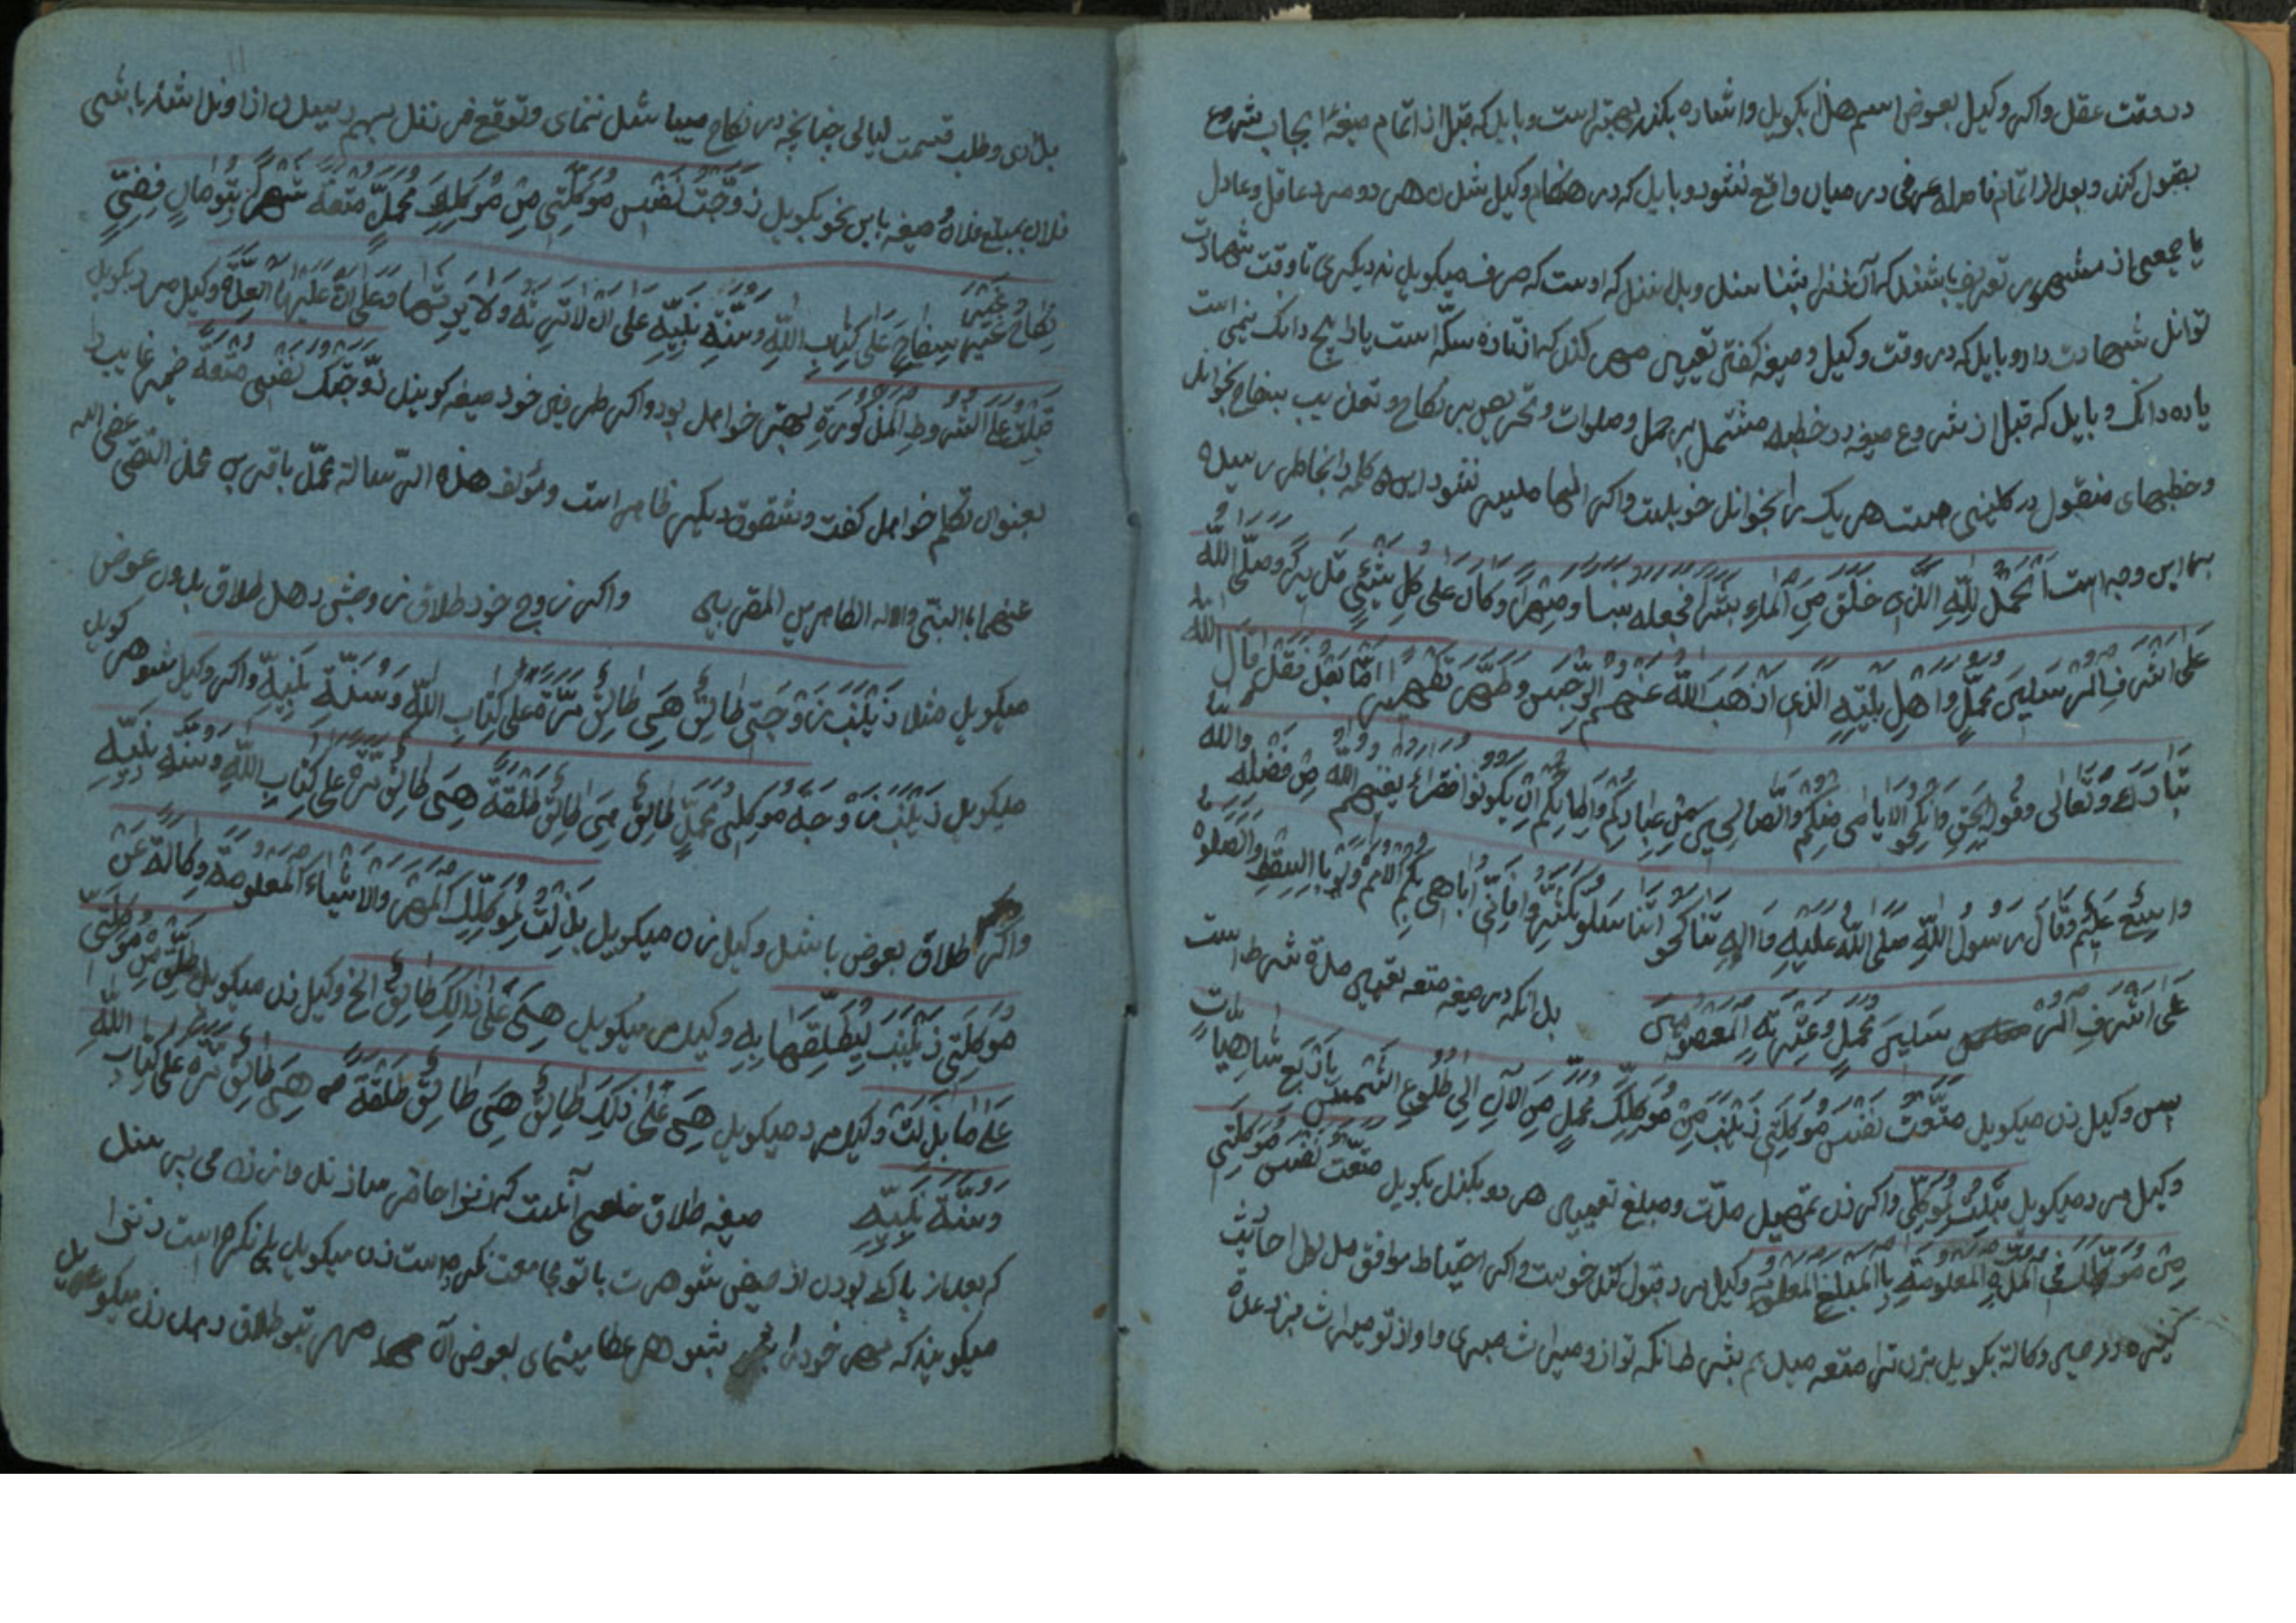 در وقت عقد واکر وکیل بعوض اسم هذا بکوید واشاره بکند بهتر است وباید که قبل از اتمام صیغهٔ ایجاب شروع
بقبول کند وبعد از اتمام فاصله عرفی در میان واقع نشود وباید که در هنکام وکیل شدن هر دو مرد عاقل وعادل
یا جمعی از مشهور باشند که آن زنرا بشناسند وبدانند که اوست که حرف میکوید نه دیکری تا وقت شهادت
توانند شهادت داد وباید که در وقت وکیل وصیغه کفتن تعیین مهر کند که افتاده سکّه است یا پنج دانک نیمی است
یا ده دانک وباید که قبل از شروع صیغه در خطبه مشتمل بر حمد وصلوات وتحریص بر نکاح وتهذیب بسفاح بخواند
وخطبهای منقول در کلینی هست هر یک را بخوانند خوبست واکر اینها میسر نشود این کلمه را بخاطر رسیده
باین وجه است اَلحَمدُ لِلّٰهِ الَّذی خَلَقَ مِنَ المٰاءِ بَشَرًا فجعله نسبا وصِهرًا وَکانَ عَلی کُلِّ شَیئٍ قَدیرًا وصلّی اللّٰه
عَلی اَشرَفِ المُرسَلینَ مُحَمَّدٍ واَهلِ بَیتِهِ الذی اَذهَبَ اللّٰه عَنهُم الرِّجسَ وطَهَّرَهُم تَطهیرا امّا بَعدُ فَقَد قٰالَ اللّٰهُ
تَبٰارَکَ وَتَعٰالی وقَولُهُ الحَق وَاَنکِحُو الاَیٰامیٰ مِنکُم وَالصّالِحینَ مِن عِبادِکُم وَاِمٰائِکُم اِن یَکونوا فُقَرٰاءَ یُغنِهِم اللّٰه مِن فَضلِه واللّٰه
واسِعٌ عَلیمٌ وقٰالَ رَسُولُ اللّٰهِ صَلّی اللّٰه عَلَیهِ وَاٰلِهِ تَنٰاکَحُو اَنَناسَلو تَکثُرو فَاِنّی اُباهی بِکُمُ الاُمَمَ وَلَو بِالسِّقطِ والصّلوة
عَلی اَشرَفِ المُرسَلینَ مُحَمَّد وعِترَتِهِ المَعصومینَ بدانکه در صیغه متعه تعیین مدّة شرط است
پس وکیل زن میکوید مَتَّعتُ نَفسَ مُوَکِّلَتی زَینَب مِن مُوَکِّلِکَ مُحَمَّدٍ مِنَ الاٰنِ اِلی طُلُوعِ الشَّمس بِاَربَعِ شٰاهیات
وکیل مرد میکوید قَبِلتُ لِمُوَکِّلی واکر زن بتفصیل مدّت ومبلغ تعیین هر دو بکند بکوید مَتَّعتُ نَفسَ مُوَکِّلَتی
مِن مُوَکِّلِکَ فی المُدَّةِ المَعلُومَةِ بِالمَبلَغِ المَعلومِ وکیل مرد قبول کند خوبست واکر احتیاط موافق مدلول احادیث
کند وکالة بکوید بزن ترا متعه میدهم بشرطانکه تو از ومیراث نبری واو از تو میراث نبرد عدّة
بداری وطلب قسمت لیالی چنانچه در نکاح میباشد ننمای وتوقع فرزند بهم رسیدن از او نداشته باشی
فلان بمبلغ فلان صیغه باین نحو بکوید زَوَّجتُ نَفسَ مُوَکِّلَتی مِن مُوَکِّلِکَ مُحَمَّدٍ مُتعَةً
نِکاحًا غَیرَ سِفاحٍ عَلی کِتابِ اللّٰهِ وَسُنَّةِ نَبِیِّهِ عَلی اَن لاتَرِثَهُ ولا یَرِثَها وَعَلی اَنَّ عَلَیهَا العِدَّةَ وکیل مرد بکوید
قَبِلتُ عَلَی الشُّروطِ المَذکُورَةِ بهتر خواهد بود واکر طرفین خود صیغه کویند زَوَّجتُکَ نَفسی مُتعَةً ضمیر غایب را
بعنوان تکلم خواهد کفت وشقوق دیکر ظاهر است ومؤلف هذه الرّسالة محمّد باقر بن محمد التقی عفی الله
عنهما بالنبی واله الطاهرین المقربین واکر زوج خود طلاق زوجش دهد طلاق بدون عوض
میکوید مثلا زَینَب زَوجَتی طٰالِقٌ هِیَ طٰالِقٌ مَرَّةً عَلی کِتٰابِ اللّٰه وَسُنَّةِ نَبِیِّهِ واکر وکیل شوهر کوید
میکوید زَینَب زَوجَةُ مُوَکِّلی مُحَمَّدٍ طٰالِقٌ هِیَ طٰالِقٌ طَلقَةً هِیَ طٰالِقٌ مَرَّةً عَلی کِتٰابِ اللّٰهِ وسُنَّةِ نَبِیِّهِ
واکر طلاق بعوض باشد وکیل زن میکوید بَذَلتُ لِمُوَکِّلِکَ المَهرَ والاَشیٰاءَ المَعلومَةَ وکالَةً عَن
مُوَکِّلَتی زَینَبَ لِیُطَلِّقَهٰا بِهِ وکیل مرد میکوید هِیَ عَلی ذٰلِکَ طٰالِقٌ الخ وکیل زن میکوید
عَلی مٰا بَذَلتُ وکیل مرد میکوید هِیَ عَلی ذٰلِکَ طٰالِقٌ هِیَ طٰالِقٌ طَلقَةً هِیَ طٰالِقٌ مَرَّةً عَلی کِتٰابِ اللّٰهِ
وَسُنَّةِ نَبِیِّهِ صیغه طلاق خلعی آنست که زنرا حاضر سازند واز زن می پرسند
که بعد از پاک بودن از حیض شوهرت با تو مجامعت نکرده است زن میکوید بلی نکرده است زنرا
میکویند که مهر خود را بشوهر عطا مینمای بعوض آن مهر بتو طلاق دهد زن میکوید بلی